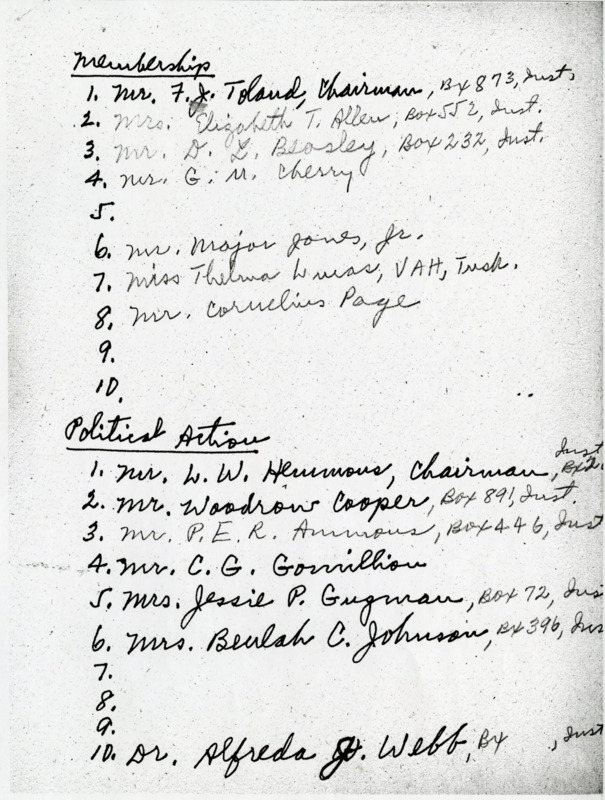 Membership
1. Mr. F. J. Toland, Chairman, Bx 873, Inst.
2. Mrs. Elizabeth T. Allen, Box 552, Inst.
3. Mr. D. L. Beasley, Box 232, Inst.
4. Mr. G. M. Cherry
5.
6. Mr. Major Jones, Jr.
7. Miss Thelma Lucas, VAH, Tusk.
8. Mr. Cornelius Page
9.
10.
Political Action
1. Mr. L. W. Hemmous, Chairman, Inst Bx 2
2. Mr. Woodrow Cooper, Box 891, Inst.
3. Mr. P. E. R. Ammous, Box 446, Inst
4. Mr. C. G. Gomillion
5. Mrs. Jessie P. Guzman, Box 72, Ins
6. Mrs. Beulah C. Johnson, Bx 396, Ins
7.
8.
9.
10. Dr. Alfreda Webb, Bx , Inst